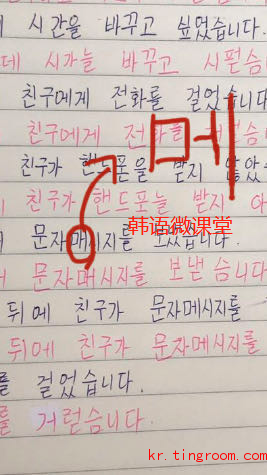 시간을 바꾸고 싶었습니다.
시가늘 바꾸고 시펃슴
친구에게 전화를 걸었습니다
친구에게 전
친구가 핸드포을 받지 않았
친구가 핸드포늘 받지 아
메
韩语微课堂
문자메시지를 보냈습니다.
문자메시지를 보낻슴니다.
뒤에 친구가 문자메시지를
뒤에 친구가 문자메시지를
를 걸었습니다.
를 거럳슴니다.
kr.tingroom.com